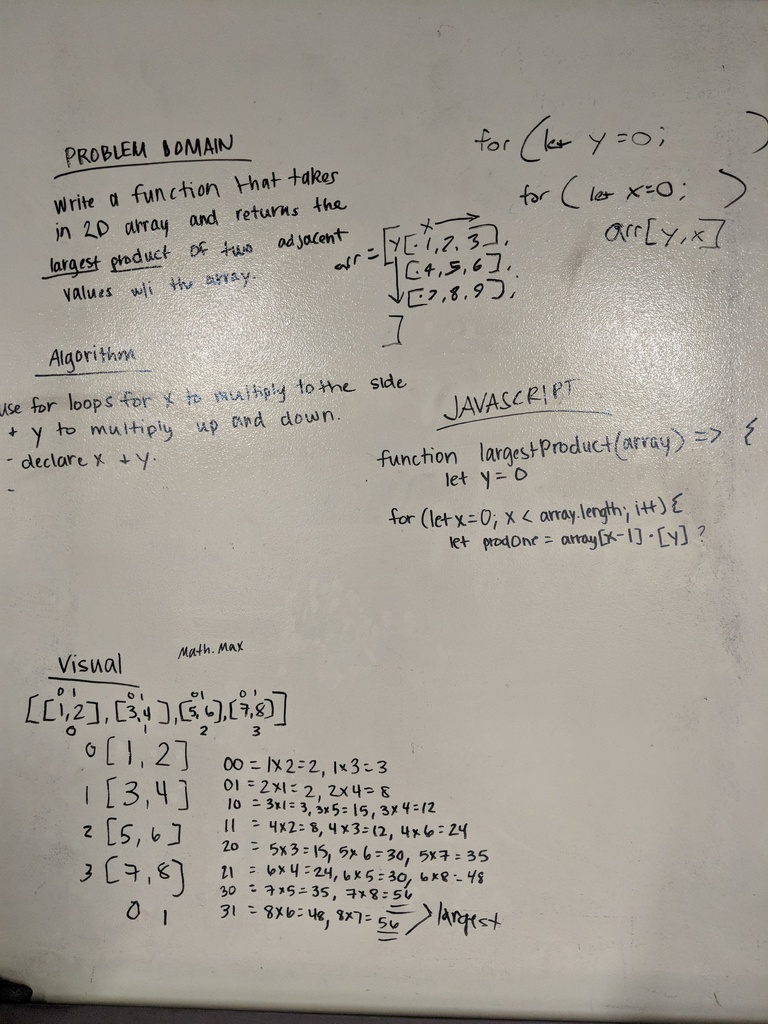 PROBLEM DOMAIN
Write a function that takes
in 2D array and returns the
largest product of two adjacent
values w/i the array.
for (let y=0; )
for (let x=0; )
arr[y,x]
x
arr = [y[1,2,3],
[4,5,6],
[7,8,9],
]
Algorithm
use for loops for x to multiply to the side
+ y to multiply up and down.
- declare x + y.
-
JAVASCRIPT
function largestProduct(array) => {
let y=0
for (let x=0; x < array.length; i++){
let prodOne = array[x-1]·[y] ?
Visual
Math.Max
0 1 0 1 0 1 0 1
[[1,2],[3,4],[5,6],[7,8]]
0 1 2 3
0 [1, 2]
1 [3,4]
2 [5,6]
3 [7,8]
0 1
00 = 1x2=2, 1x3=3
01 = 2x1=2, 2x4=8
10 = 3x1=3, 3x5=15, 3x4=12
11 = 4x2=8, 4x3=12, 4x6=24
20 = 5x3=15, 5x6=30, 5x7=35
21 = 6x4=24, 6x5=30, 6x8=48
30 = 7x5=35, 7x8=56
31 = 8x6=48, 8x7=56 > largest